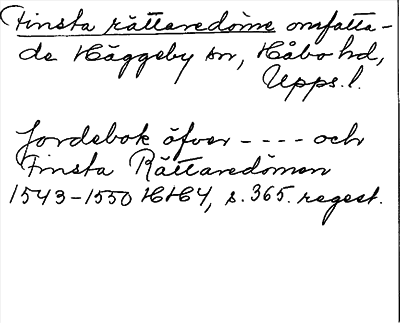 Finsta rättaredöme omfatta-
de Häggeby sn, Håbo hd,
Upps. l.
Jordebok öfver - - - - och
Finsta Rättaredömen
1543-1550 HH4, s. 365. regest.